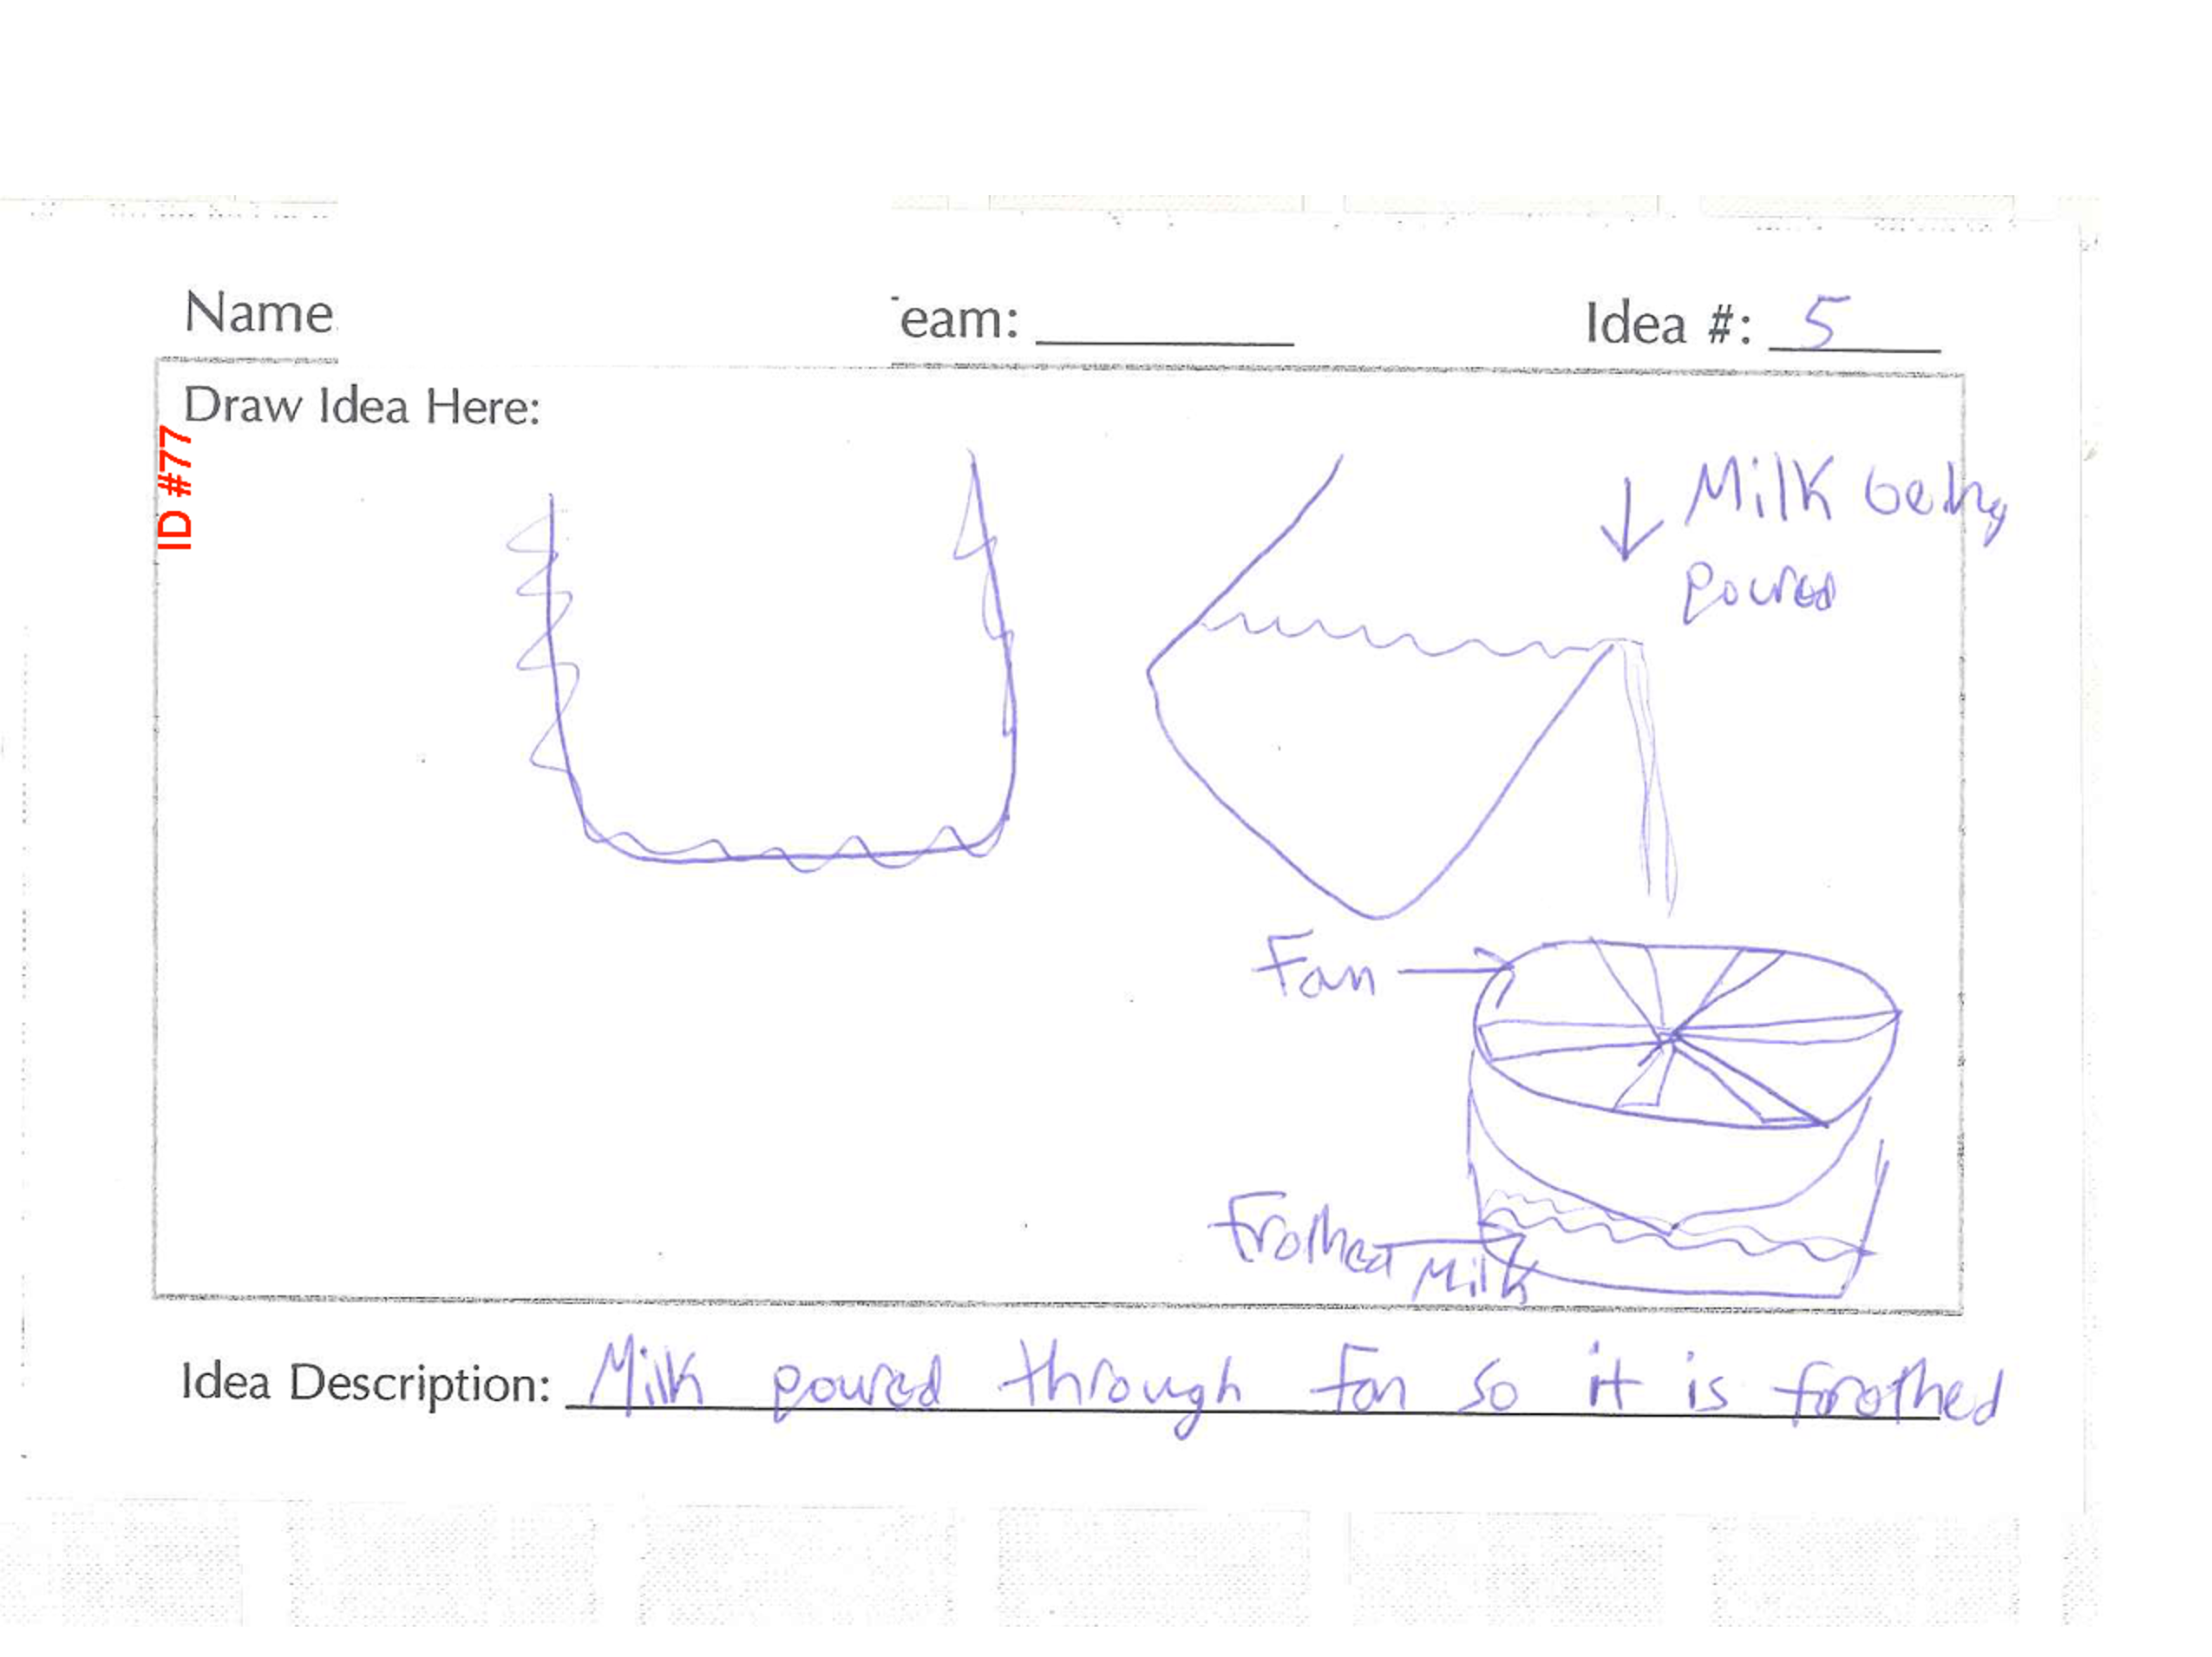 Name
eam:
Idea #: 5
Draw Idea Here:
ID #77
Milk being
poured
Fan
Frothed Milk
Idea Description: Milk poured through fan so it is frothed